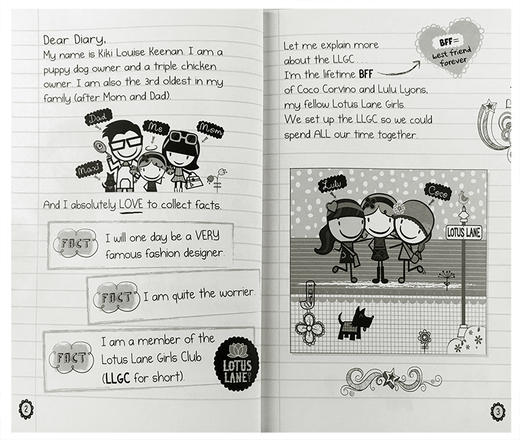 Dear Diary,
My name is Kiki Louise Keenan. I am a
puppy dog owner and a triple chicken
owner. I am also the 3rd oldest in my
family (after Mom and Dad).
Dad
Me
Mom
Maxi
And I absolutely LOVE to collect facts.
FACT
I will one day be a VERY
famous fashion designer.
FACT
I am quite the worrier.
FACT
I am a member of the
Lotus Lane Girls Club
(LLGC for short).
LOTUS
LANE
2
Let me explain more
about the LLGC.
I'm the lifetime BFF
of Coco Corvino and Lulu Lyons,
my fellow Lotus Lane Girls.
We set up the LLGC so we could
spend ALL our time together.
BFF=
best friend
forever
Lulu
Coco
LOTUS LANE
3